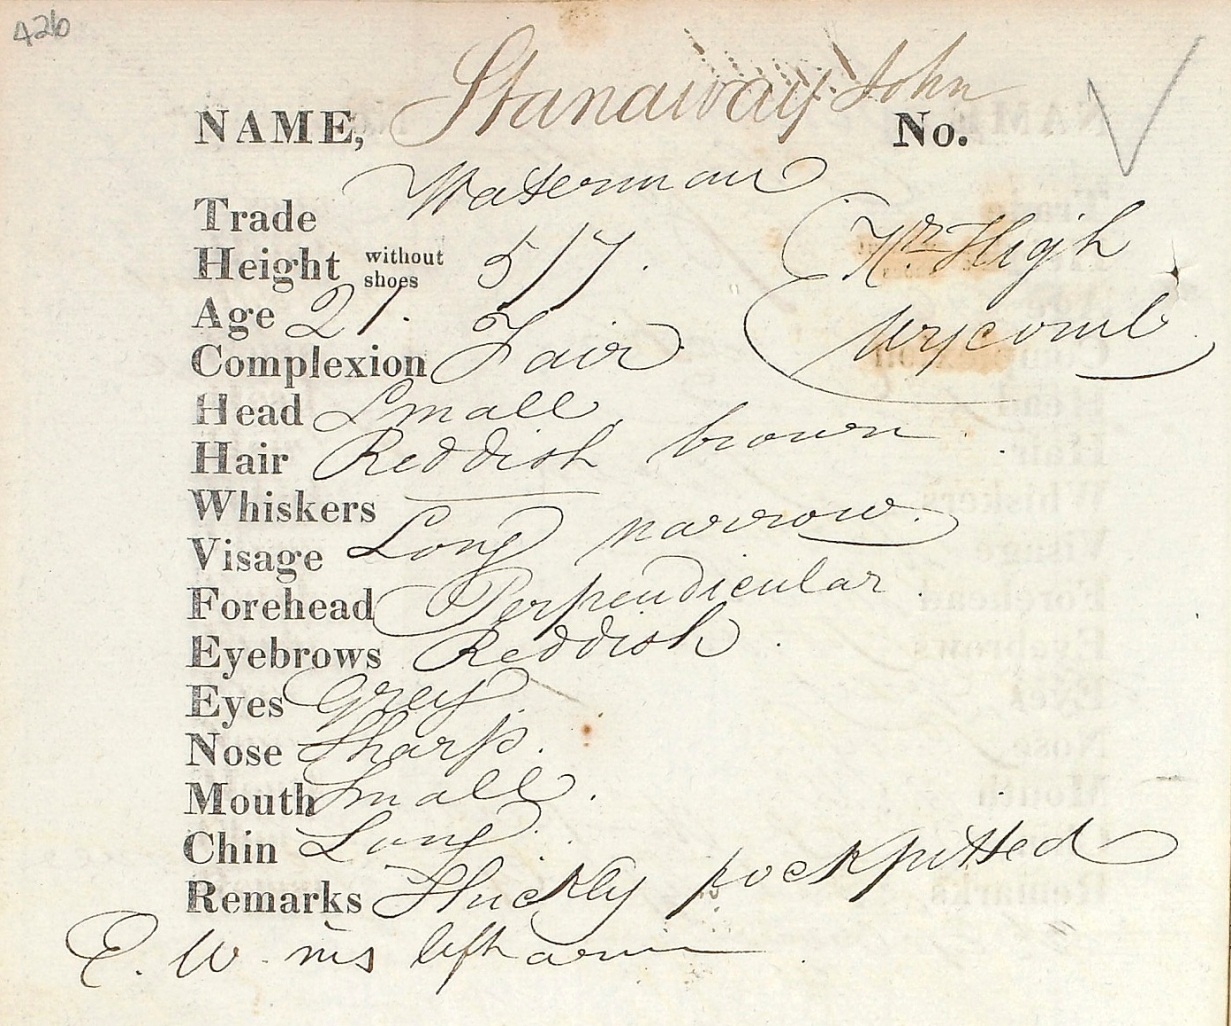 426
NAME, Stanaway John No.
Trade Waterman
Height without shoes 5/7. Nr High
Age 21. Wycomb
Complexion Fair
Head Small
Hair Reddish brown
Whiskers
Visage Long narrow
Forehead Perpendicular
Eyebrows Reddish
Eyes Grey
Nose Sharp.
Mouth Small.
Chin Long.
Remarks Thickly pockpitted
E. W. ins left arm